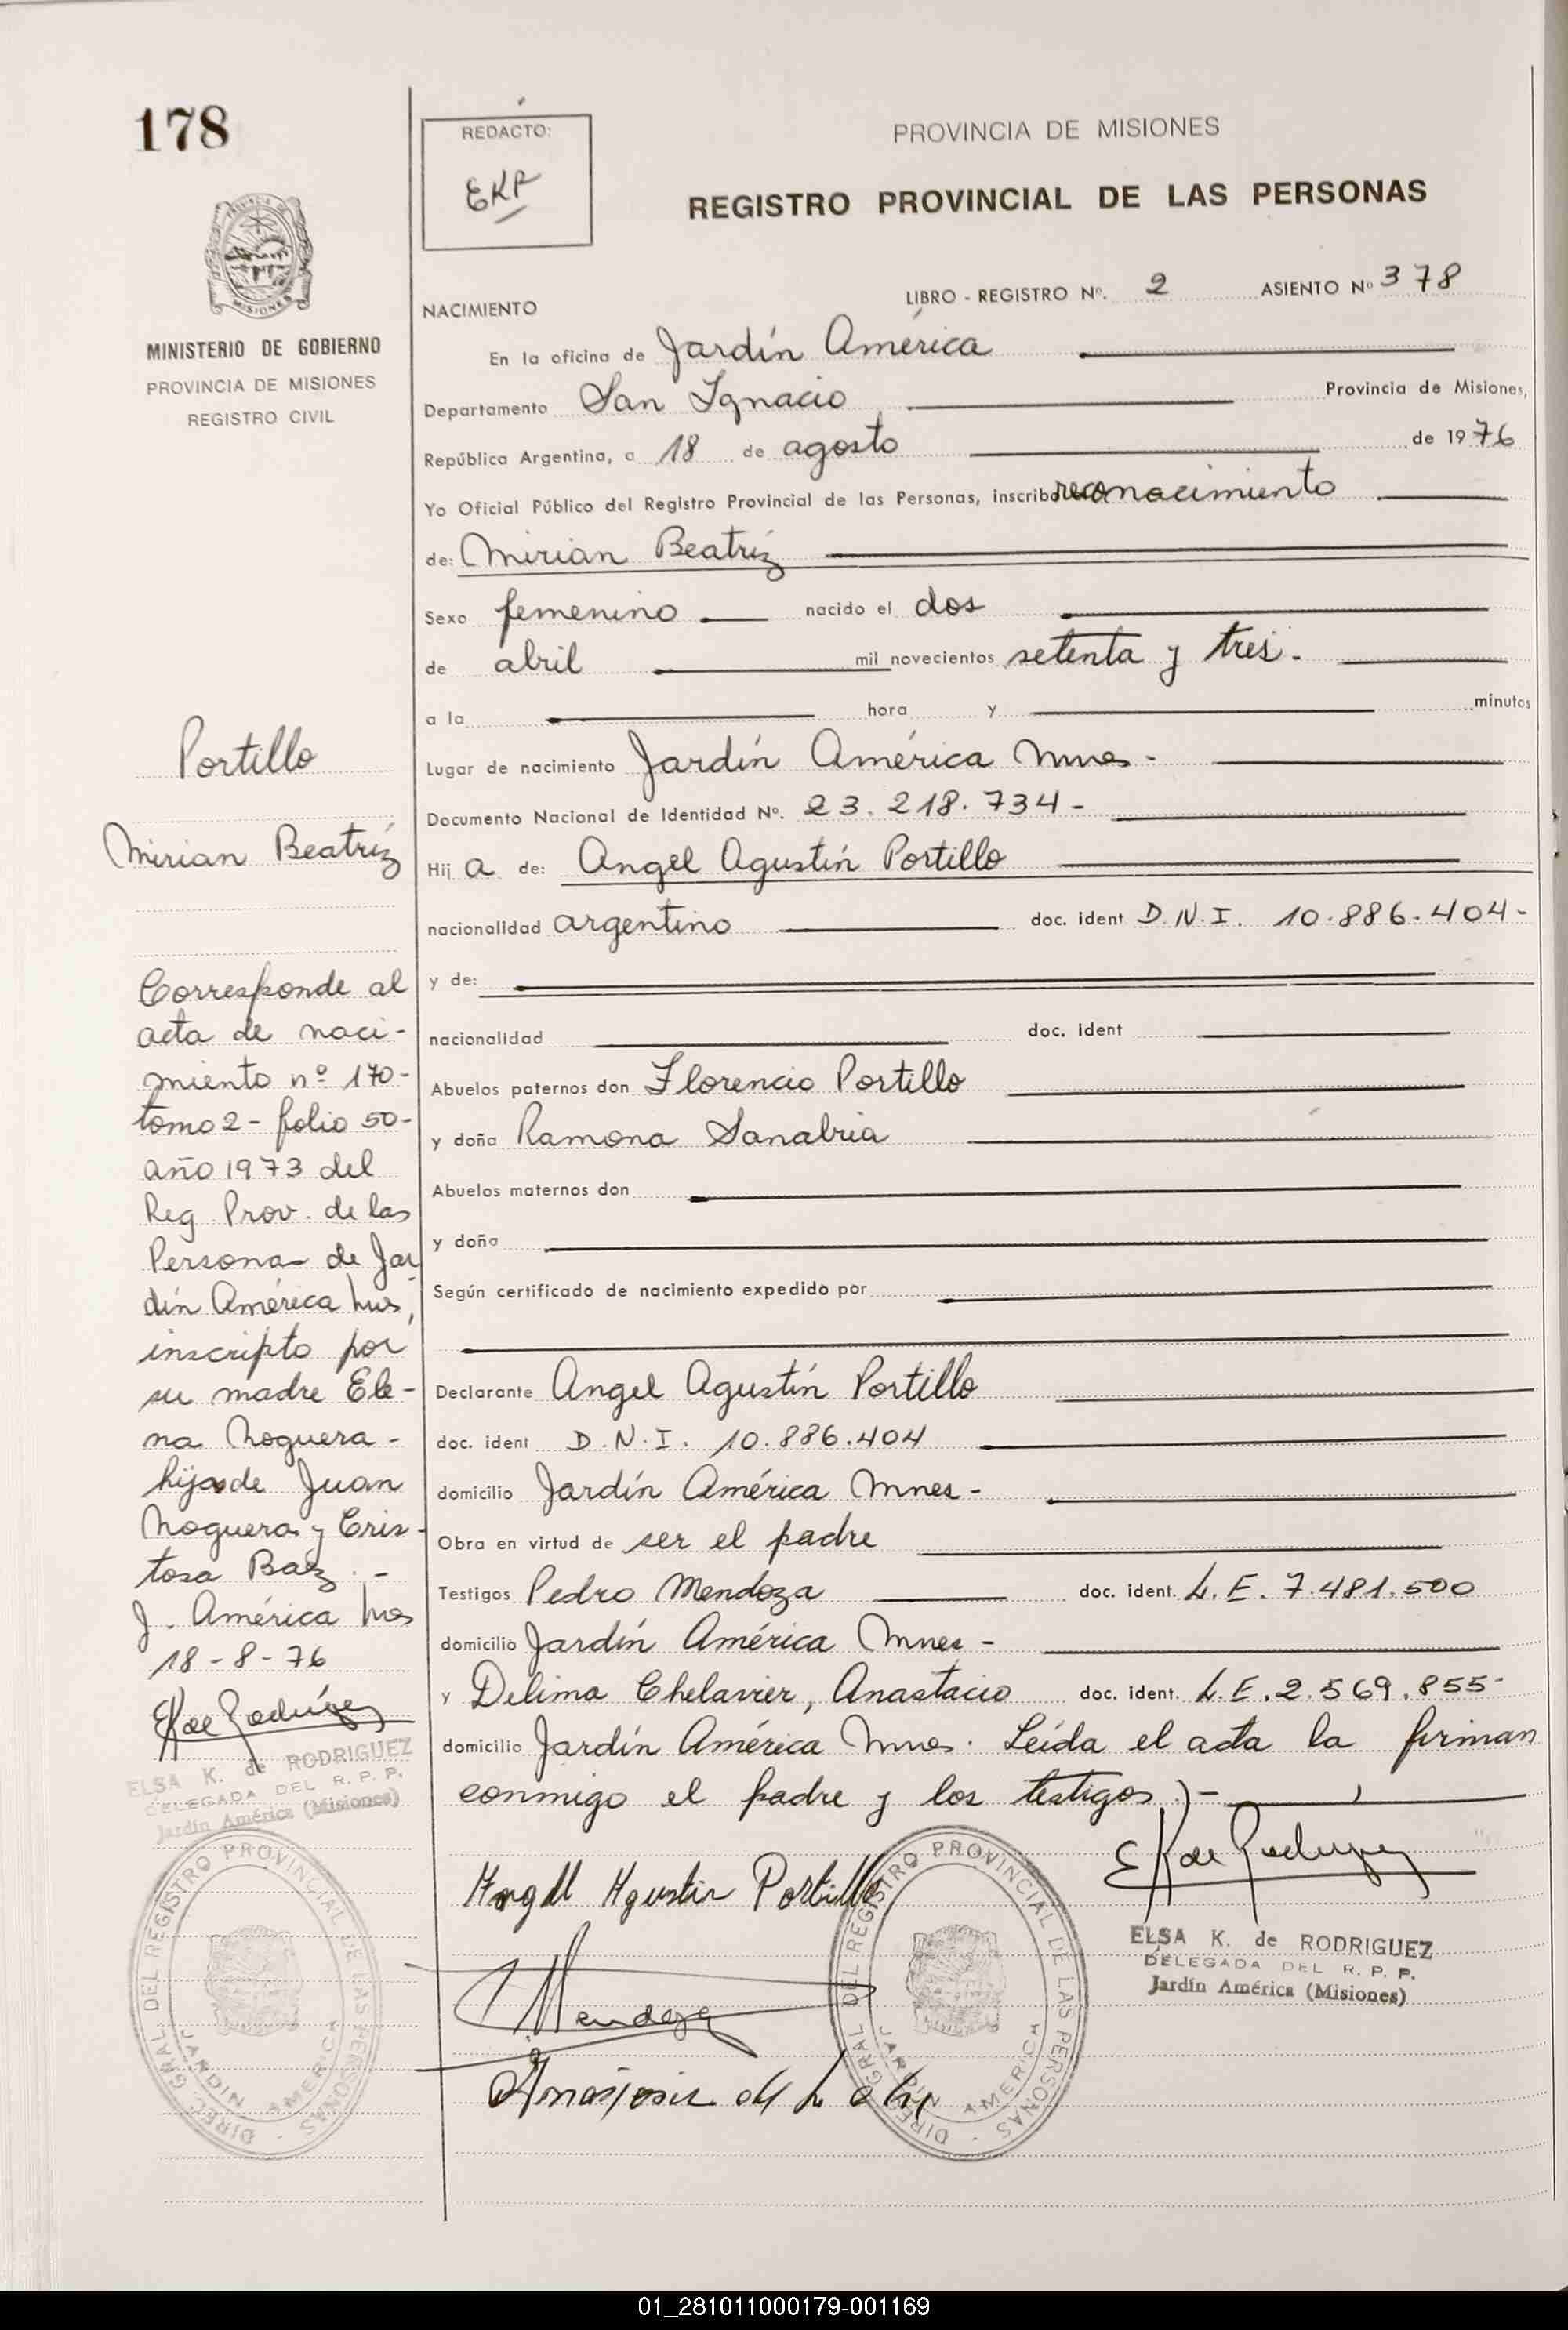 178
REDACTO:
EKR
PROVINCIA DE MISIONES
REGISTRO PROVINCIAL DE LAS PERSONAS
MISIONES
MINISTERIO DE GOBIERNO
PROVINCIA DE MISIONES
REGISTRO CIVIL
NACIMIENTO
LIBRO - REGISTRO Nº. 2 ASIENTO Nº 378
En la oficina de Jardín América
Departamento San Ignacio Provincia de Misiones,
República Argentina, a 18 de agosto de 1976
Yo Oficial Público del Registro Provincial de las Personas, inscribo reconocimiento
de: Mirian Beatríz
Sexo femenino nacido el dos
de abril mil novecientos setenta y tres.
a la hora y minutos
Lugar de nacimiento Jardín América Mnes -
Documento Nacional de Identidad Nº. 23.218.734-
Hija de: Angel Agustín Portillo
nacionalidad argentino doc. ident D.N.I. 10.886.404-
y de:
nacionalidad doc. ident
Abuelos paternos don Florencio Portillo
y doña Ramona Sanabria
Abuelos maternos don
y doña
Según certificado de nacimiento expedido por
Declarante Angel Agustín Portillo
doc. ident D.N.I. 10.886.404
domicilio Jardín América Mnes -
Obra en virtud de ser el padre
Testigos Pedro Mendoza doc. ident. L.E. 7.481.500
domicilio Jardín América Mnes -
y Delima Chelavier, Anastacio doc. ident. L.E. 2.569.855-
domicilio Jardín América Mnes. Leída el acta la firman
conmigo el padre y los testigos.)-
Portillo
Mirian Beatríz
Corresponde al
acta de naci-
miento nº 170-
tomo 2 - folio 50-
año 1973 del
Reg. Prov. de las
Personas de Jar
dín América Mns,
inscripto por
su madre Ele-
na Noguera -
hija de Juan
Noguera y Cris-
tosa Baez. -
J. América Mns
18-8-76
EK de Rodríguez
ELSA K. de RODRIGUEZ
DELEGADA DEL R. P. P.
Jardín América (Misiones)
DIREC. GRAL. DEL REGISTRO PROVINCIAL DE LAS PERSONAS
JARDIN AMERICA
Angel Agustin Portillo
Mendoza
EK de Rodriguez
ELSA K. de RODRIGUEZ
DELEGADA DEL R. P. P.
Jardín América (Misiones)
DIREC. GRAL. DEL REGISTRO PROVINCIAL DE LAS PERSONAS
JARDIN AMERICA
01_281011000179-001169